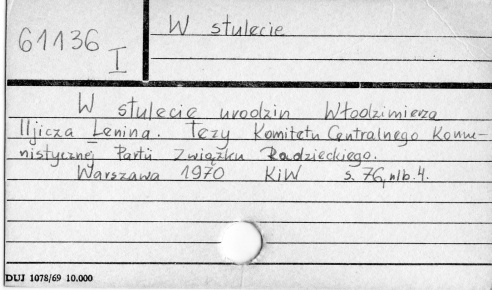 61136 I
W stulecie
W stulecie urodzin Włodzimierza
Iljicza Lenina. Tezy Komitetu Centralnego Komu-
nistycznej Partii Związku Radzieckiego.
Warszawa 1970 KiW s. 76, nlb. 4.
DUJ 1078/69 10.000